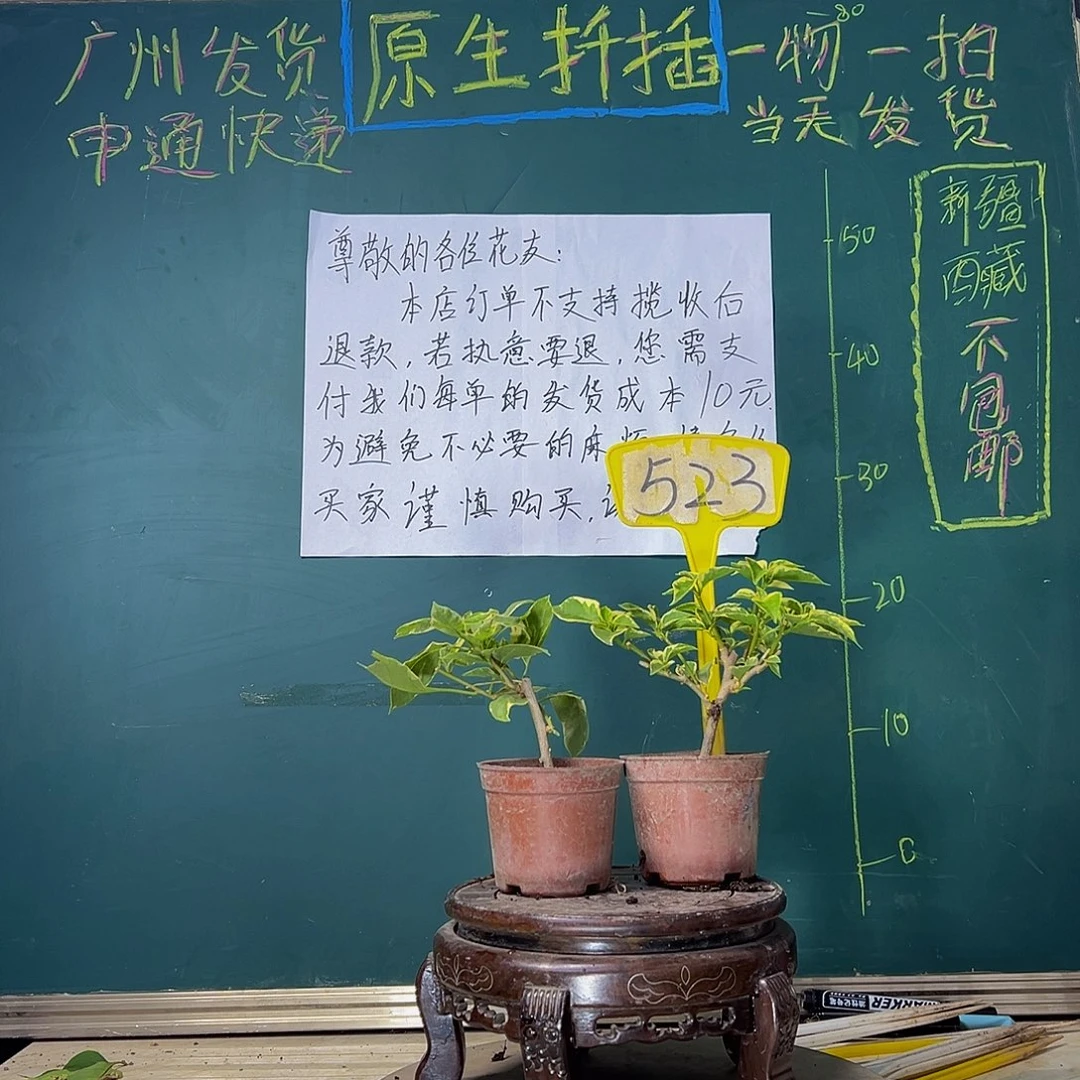 广州发货
原生扦插
一物一拍
申通快递
当天发货
80
新疆
西藏
不包邮
尊敬的各位花友:
本店订单不支持揽收后
退款,若执意要退,您需支
付我们每单的发货成本10元.
为避免不必要的麻
买家谨慎购买,
523
50
40
30
20
10
0
MARKER